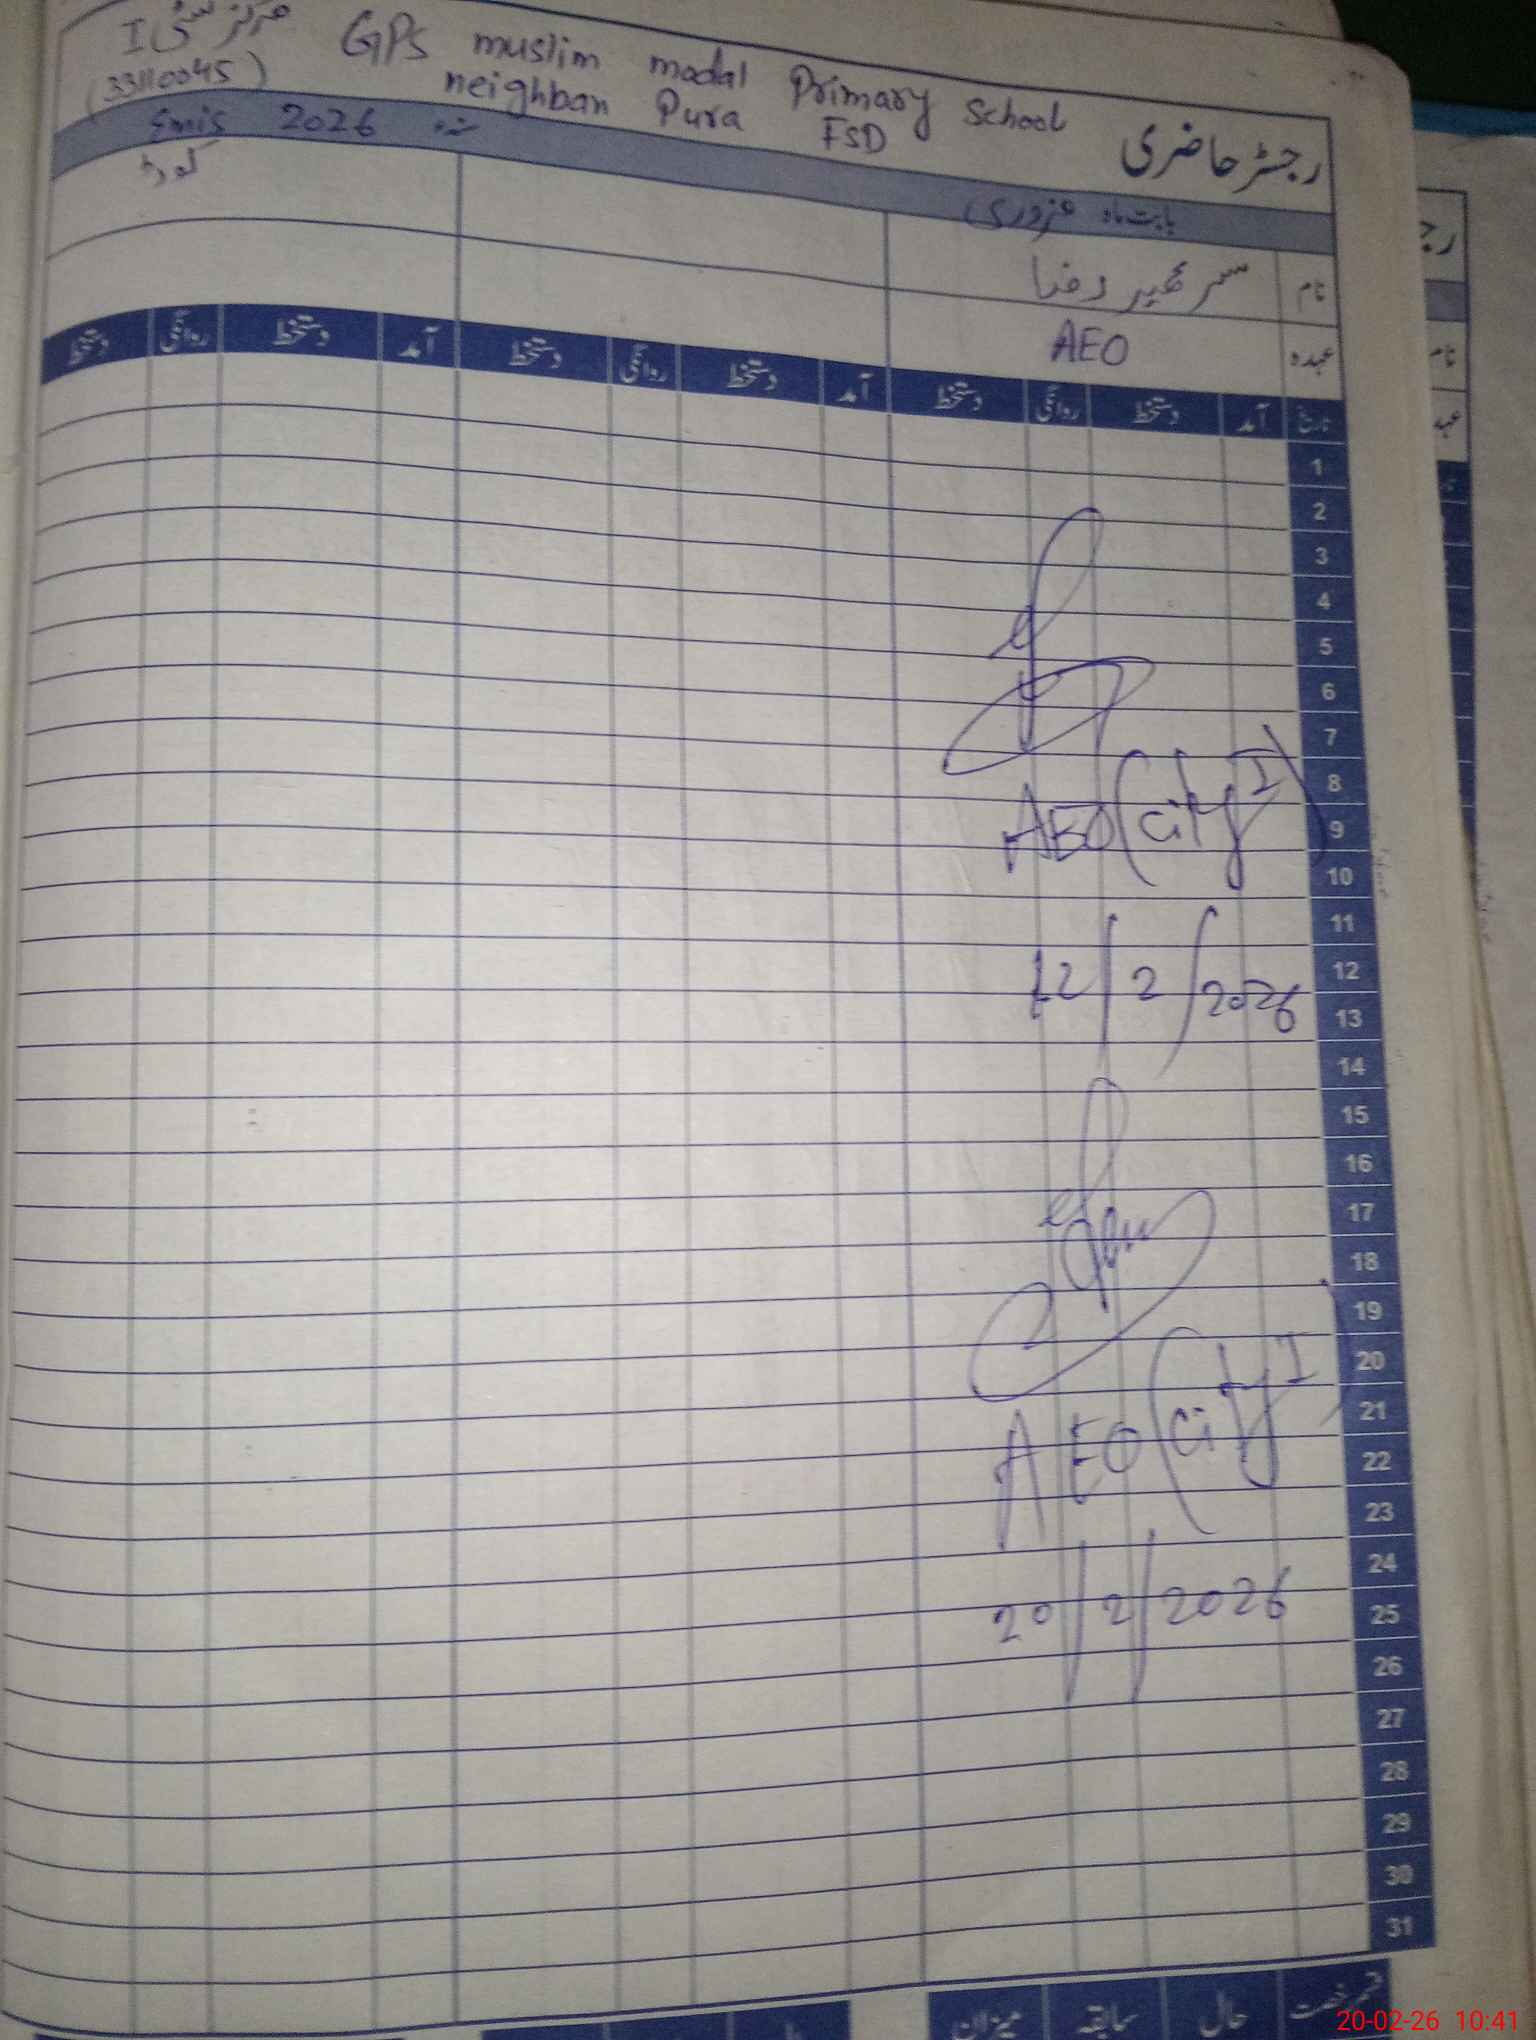 مرکز سٹی I GPs muslim modal Primary School
(33110045) neighban Pura FSD
رجسٹر حاضری
Emis 2026 سنہ
کوڈ
بابت ماہ فروری
نام سر عمیر رضا
عہدہ AEO
تاریخ آمد دستخط روانگی دستخط آمد دستخط روانگی دستخط آمد دستخط روانگی دستخط
1
2
3
4
5
6
7
8
AEO (City I)
9
10
11
12
12/2/2026
13
14
15
16
17
18
19
20
21
AEO (City I)
22
23
24
25
20/2/2026
26
27
28
29
30
31
حال سابقہ میزان
رج
نام
20-02-26 10:41